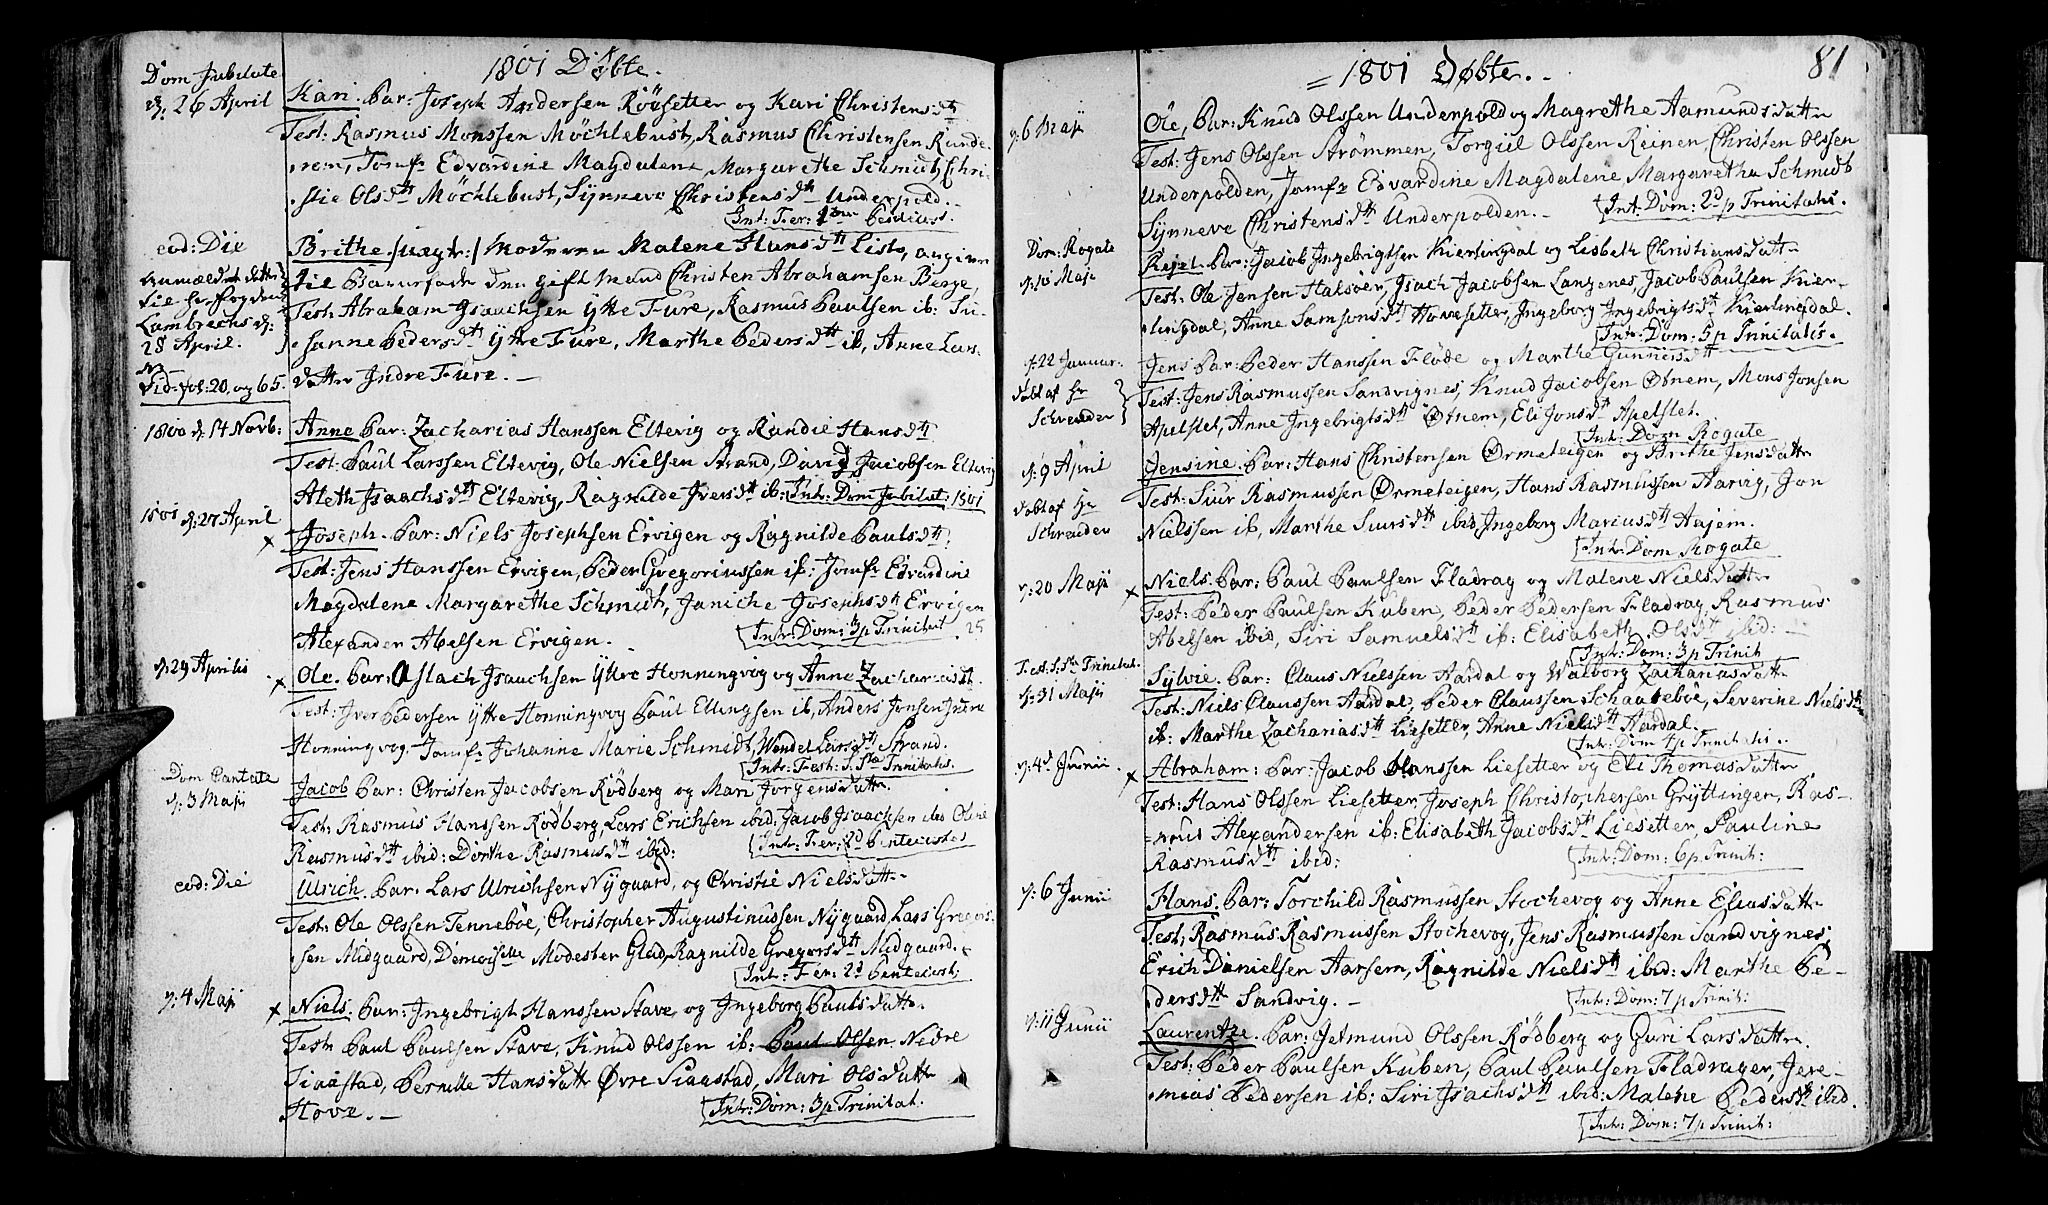 1801 Døbte.
Dom Jubilate
d: 26 April
Kari. Par: Joseph Andersen Röysetter og Kari Christensdtt
Test: Rasmus Monssen Möchlebust, Rasmus Christensen Runde
rem, Jomfr Edvardine Magdalene Margarethe Schmidt, Chri-
stie Olsdtt Möchlebust, Synneve Christensdtt Underpold.
Int: Fer: Pentecost.
eod: Die
Anmældet dette
til Hr Fogden
Lambrechs d:
28 April.
Vid: fol: 20, og 65.
Brithe /uægte/ Moderen Malene Hansdtt Liste, angiver
til Barnefader den gift Mand Christen Abrahamsen Berge,
Test: Abraham Isaachsen Ytre Fure, Rasmus Paulsen ib: Su-
sanne Pedersdtt Ytre Fure, Marthe Pedersdtt ib, Anne Lars
datter Indre Fure. —
1800 d 14 Novb:
Anne Par: Zacharias Hanssen Eltevig og Randie Hansdtt
Test: Paul Larssen Eltevig, Ole Nielsen Strand, David Jacobsen Eltevig
Aleth Isaachsdtt Eltevig, Ragnilde Iversdtt ib: Int: Dom Jubilat: 1801
1801 d: 27 April
Joseph. Par: Niels Josephsen Ervigen og Ragnilde Paulsdtt
Test: Jens Hanssen Ervigen, Peder Gregoriussen ib: Jomfr Edvardine
Magdalene Margarethe Schmidt, Janiche Josephsdtt Ervigen
Alexander Abelsen Ervigen. Int: Dom: 3 p Trinitat
d: 29 Aprilis
Ole. Par: Aslach Isaachsen Ytre Honningvog og Anne Zachariasdt.
Test: Iver Pedersen Ytre Honningvog Paul Ellingsen ib, Anders Jonsen Indre
Honningvog. Jomfr Johanne Marie Schmidt, Wendel Larsdtt Strand.
Int: Fest: S. Sta Trinitatis.
Dom Cantate
d: 3 Maji
Jacob Par: Christen Jacobsen Rödberg og Mari Jörgensdatter
Test: Rasmus Hanssen Rödberg, Lars Erichsen ibid: Jacob Isaachsen ibid Oline
Rasmusdtt ibid: Dorthe Rasmusdtt ibid: Int: Fer: 2d Pentecostes
eod: Die
Ulrich. Par: Lars Ulrichsen Nygaard, og Christie Nielsdatter
Test: Ole Olssen Tenneböe, Christopher Augustinussen Nygaard, Lars Gregers-
sen Midgaard, Demoiselle Modester Glad, Ragnilde Gregersdtt Midgaard.
Int: Fer: 2d Pentecost:
d: 4 Maji
Niels. Par: Ingebrigt Hanssen Stave, og Ingeborg Paulsdatter.
Test: Paul Paulsen Stave, Knud Olssen ib: Paul Olsen Nedre
Siaastad, Pernille Hansdatter Øvre Siaastad, Mari Olsdatter
Hove. — Int: Dom: 3 p Trinitat.
81
= 1801 Døbte. -
d: 6 Maji
Ole, Par: Knud Olssen Underpold og Magrethe Aamundsdatter
Test: Jens Olssen Strömmen, Torgiul Olssen Reinen, Christen Olssen
Underpolden, Jomfr Edvardine Magdalene Margaretha Schmidt
Synneve Christensdtt Underpolden. - Int: Dom: 2d p Trinitatis.
Dom: Rogate
d: 10 Maji
Rejel. Par: Jacob Ingebrigtsen Kierlingdal og Lisbeth Christiansdatter
Test: Ole Jensen Halsöer, Isach Jacobsen Langenes, Jacob Paulsen Kier-
lingdal, Anne Samsonsdtt Hovesetter, Ingeborg Ingebrigtsdtt Kierlingdal.
Int: Dom: 5 p Trinitatis.
d: 22 Januar.
døbt af Hr
Schreuder
Jens Par: Peder Hanssen Flöde og Marthe Gunnersdtt
Test: Jens Rasmussen Sandvignes, Knud Jacobsen Otnem, Mons Jonsen
Apelslet, Anne Ingebrigtsdtt Øtnem, Eli Jonsdtt Apelslet.
Int: Dom Rogate
d: 9 April
døbt af Hr
Schreuder
Jensine. Par: Hans Christensen Ørmeteigen og Brithe Jensdatter
Test: Siur Rasmussen Ørmeteigen, Hans Rasmussen Aarvig, Jon
Nielssen ib, Marthe Siursdtt ibid, Ingeborg Mariusdtt Aajem.
Int: Dom Rogate
d: 20 Maji
Niels. Par: Paul Paulsen Fladrag og Malene Nielsdatter
Test: Peder Paulsen Kuben, Peder Pedersen Fladrag, Rasmus
Abelsen ibid, Siri Samuelsdtt ib: Elisabeth Olsdtt ibid: —
Int: Dom: 3 p Trinit
Fest: S. Sta Trinitat.
d: 31 Maji
Sylvie. Par: Claus Nielssen Aardal og Walborg Zachariasdatter
Test: Niels Claussen Aardal, Peder Claussen Schaateböe, Severine Nielsdtt
ib: Marthe Zachariasdtt Liesetter, Anne Nielsdtt Aardal.
Int: Dom 4 p Trinitatis.
d: 4d Junii
Abraham: Par: Jacob Hanssen Liesetter og Eli Thomasdatter
Test: Hans Olssen Liesetter, Joseph Christophersen Gryttingen, Ras-
mus Alexandersen ib: Elisabeth Jacobsdtt Liesetter, Pauline
Rasmusdtt ibid: Int: Dom: 6 p Trinit:
d: 6 Junii
Hans. Par: Torchild Rasmussen Stochevog og Anne Eliasdatter
Test: Rasmus Rasmussen Stochevog, Jens Rasmussen Sandvignes
Erich Danielsen Aarsem, Ragnilde Nielsdtt ibid: Marthe Pe-
dersdtt Sandvig. — Int: Dom: 7 p Trinit:
d: 11 Junii
Laurentze. Par: Jetmund Olssen Rödberg og Guri Larsdatter.
Test: Peder Paulsen Kuben, Paul Paulsen Fladrager, Jere-
mias Pedersen ib: Siri Isachsdtt ibid: Malene Pedersdtt ibid.
Int: Dom: 7 p Trinit: